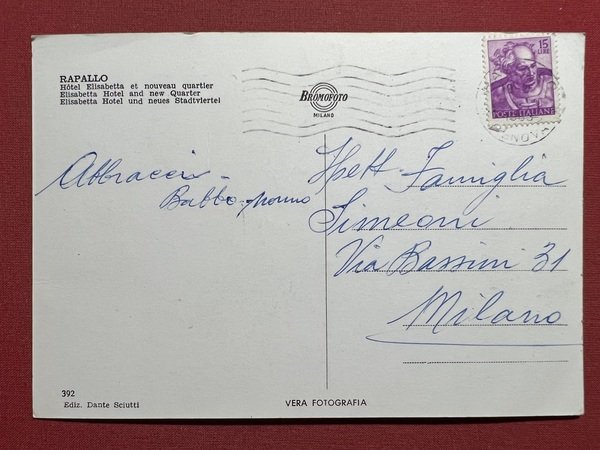 RAPALLO
Hôtel Elisabetta et nouveau quartier
Elisabetta Hotel and new Quarter
Elisabetta Hotel und neues Stadtviertel
BROMOFOTO
MILANO
15
LIRE
POSTE ITALIANE
Abbracci -
Babbo - nonno
Spett. Famiglia
Simeoni
Via Bassini 31
Milano
392
Ediz. Dante Sciutti
VERA FOTOGRAFIA